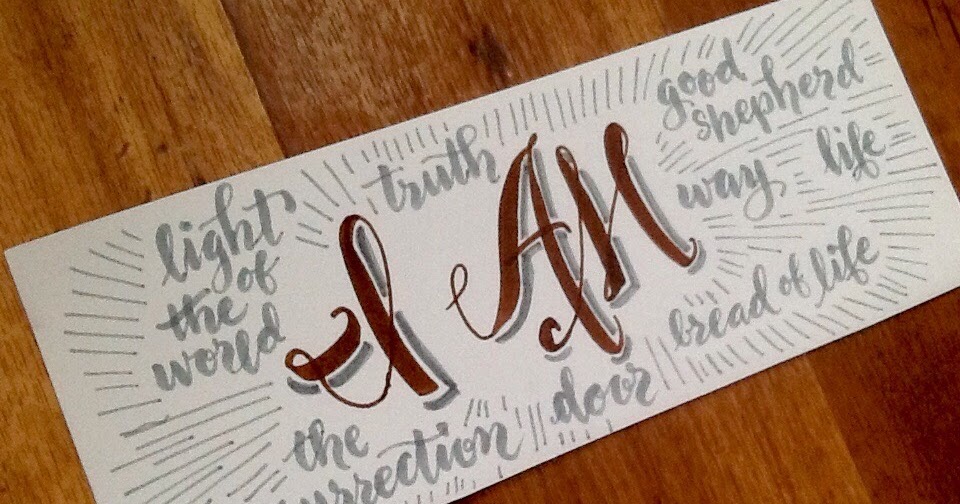 light
of
the
world
truth
I AM
good
shepherd
way
life
bread of life
door
the
urrection